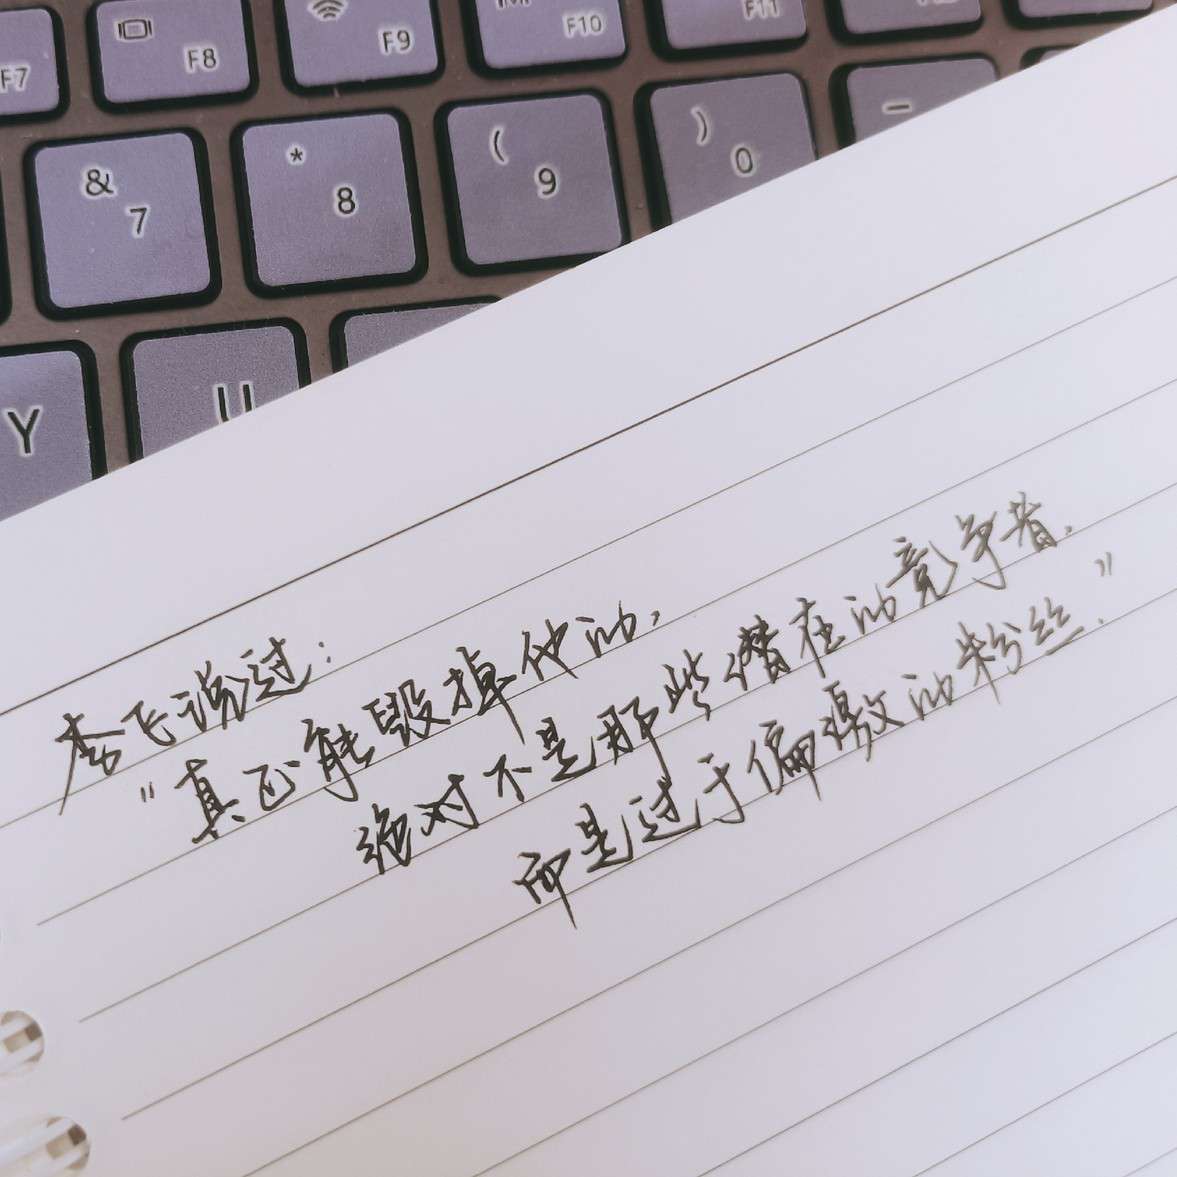 F7 F8 F9 F10 F11
& 7 * 8 ( 9 ) 0 -
Y U
李飞说过：
"真正能毁掉他的，
绝对不是那些潜在的竞争者.
而是过于偏激的粉丝."